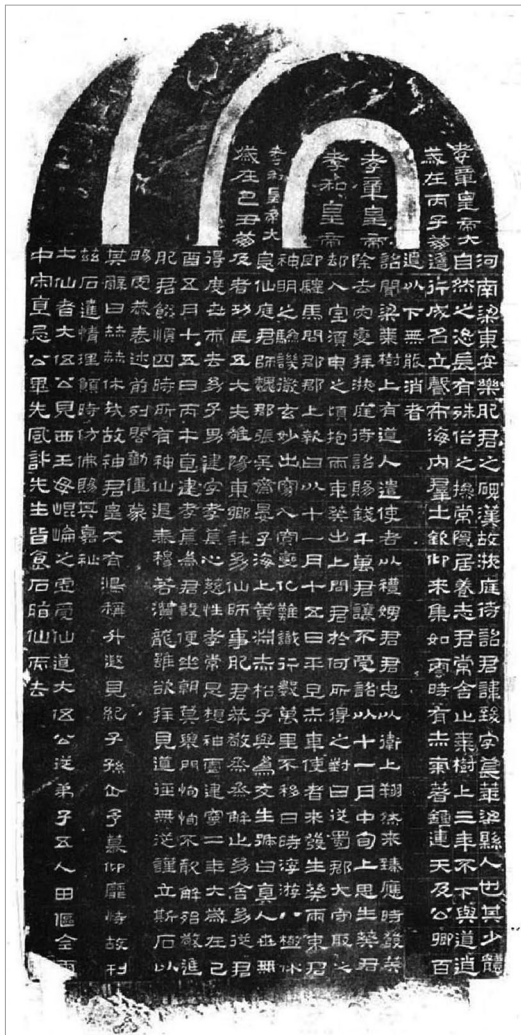 孝章皇帝
孝和皇帝
孝章皇帝大
歲在丙子崩
孝和皇帝大
歲在己丑崩
河南梁東安樂肥君之碑漢故掖庭待詔君諱致字萇華梁縣人也其少體
自然之恣長有殊俗之操常隱居養志君常舍止棗樹上三年不下與道逍
遙行成名立聲布海內羣士欽仰來集如雲時有赤氣著鍾連天及公卿百
遼以下無能消者
詔聞梁棗樹上有道人遣使者以禮娉君君忠以衛上翔然來臻應時發筭
除去灾變拜掖庭待詔賜錢千萬君讓不受詔以十一月中旬上思生葵君
却入室須臾之頃抱兩束葵出上問君於何所得之對曰從蜀郡大守取之
即驛馬問郡郡上報曰以十一月十五日平旦赤車使者來發生葵兩束君
神明之驗譏徹玄妙出窈入冥變化難識行數萬里不移日時浮游八極休
息仙庭君師魏郡張吳齋晏子海上黃淵赤松子與為友生號曰真人世無
及者功臣五大夫雒陽東鄉許幼仙師事肥君恭敬烝烝解止幼舍幼從君
得度世而去幼子男建字孝萇心慈性孝常思想神靈建寧二年大歲在己
酉五月十五日丙午直建孝萇為君設便坐朝莫舉門恂恂不敢解殆敬進
肥君餟順四時所有神仙退泰穆若潛龍雖欲拜見道徑無從謹立斯石以
暢虔恭表述前列啓勸僮蒙
其辭曰赫赫休哉故神君皇又有鴻稱升遐見紀子孫企予慕仰靡恃故刊
茲石達情理願時仿佛賜其嘉祉
土仙者大伍公見西王母崐崘之虛受仙道大伍公從弟子五人田傴全雨
中宋直忌公畢先風許先生皆食石脂仙而去